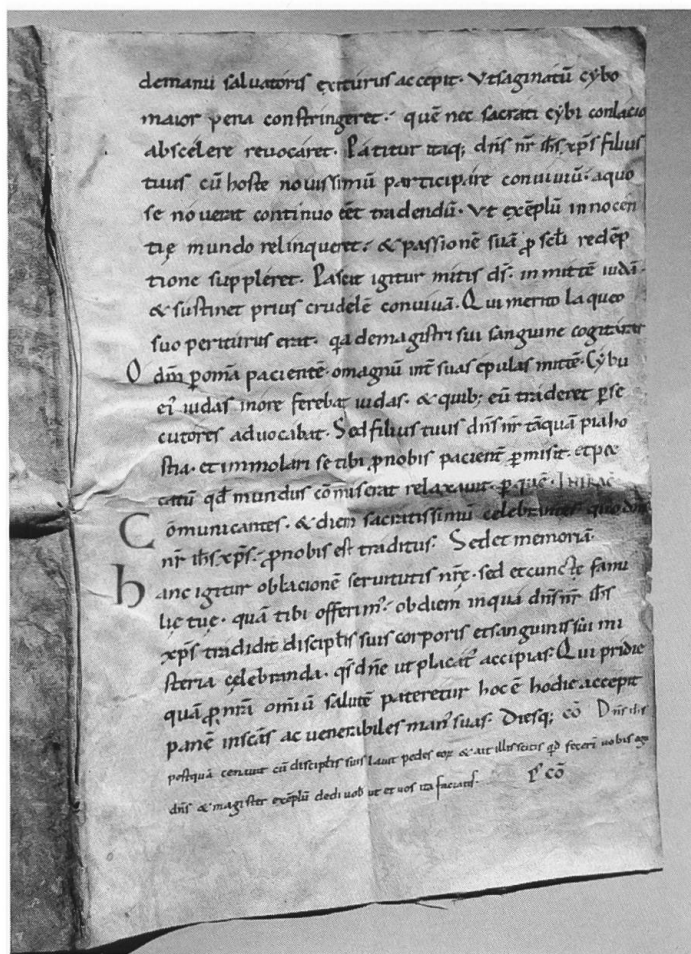 demanu saluatoris exiturus accepit. Vtsaginatū cybo
maior pena constringeret. quē nec sacrati cybi conlacio
abscelere reuocaret. Patitur itaq; dn̄s nr̄ ih̄s xp̄s filius
tuus cū hoste nouissimū participare conuiuiū. aquo
se nouerat continuo eē tradendū. Vt exēplū innocen
tię mundo relinqueret. & passionē suā ꝓ scl̄i redēp
tione suppleret. Pascit igitur mitis ds̄. inmittē iudā.
& sustinet prius crudelē conuiuā. Qui merito laqueo
suo periturus erat. qa demagistri sui sanguine cogitarat
O dn̄m ꝑom̄a pacientē. omagnū int̄ suas epulas mittē. Cybū
ei' iudas inore ferebat iudas. & quib; eū traderet ꝑse
cutores aduocabat. Sedfilius tuus dn̄s nr̄ tāquā piaho
stia. et immolari se tibi ꝓnobis pacient̄ ꝑmisit. etpec
catū qd̄ mundus cōmiserat relaxauit. ꝑ quē. Infrac
Cōmunicantes. & diem sacratissimū celebrantes quo dn̄s
nr̄ ih̄s xp̄s. ꝓnobis est traditus. Sedet memoriā.
hanc igitur oblacionē seruitutis nrę̄. sed etcunctę famı
lię tuę. quā tibi offerim'. obdiem inquā dn̄s nr̄ ih̄s
xp̄s tradidit discipl̄is suis corporis etsanguinis sui mi
steria çelebranda. qs̄ dn̄e ut placat̄ accipias. Qui pridie
quā ꝓ nr̄a om̄iū salutē pateretur hoc ē hodie accepit
panē inscās ac uenerabiles man' suas. Diesq; cō Dn̄s ih̄s
postquā cenauit cū discipl̄is suis lauit pedes eoꝝ & ait illis scitis qd̄ fecerī uobis ego
dn̄s & magister exēplū dedi uob̄ ut et uos ita faciatis. P' cō